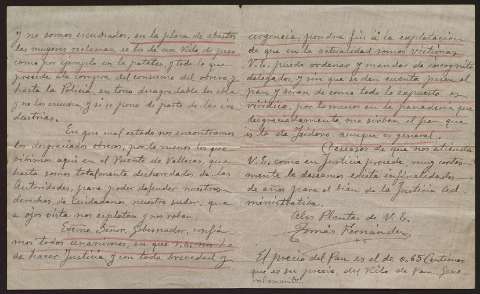 y no somos escuchados, en la plaza de abastos
las mujeres reclaman la falta de un Kilo de peso
como por ejemplo en la patatas, y todo lo que
precede a la compra del consumo del obrero, y
hasta la Policia, en tono desagradable les echa
y no les escucha y si se pone de parte de los in-
dustriales.
En que mal estado nos encontramos
los desgraciados obreros, por lo menos los que
vivimos aqui en el Puente de Vallecas, que
hasta somos totalmente desbordados de las
Autoridades, para poder defender nuestros
derechos, de Ciudadanos nuestro sudor, que
a ojos vista nos explotan y nos roban.
Excmo. Señor Gobernador, confia-
mos todos unanimes, en que V.E. nos ha
de hacer Justicia, y con toda brevedad y
urgencia, pondra fin a la explotación
de que en la actualidad somos victimas
V.E. puede ordenar y mandar de incognito
delegados, y sin que se den cuenta pesen el
pan y veran de como todo lo expuesto es
veridico, por lo menos en la panaderia que
desgraciadamente nos sirven el pan que
es la de Isidoro aunque es general.
de que nos atienda
V.E. como en Justicia procede, muy cortes-
mente le deseamos exista infinidades
de años para el bien de la Justicia Ad-
ministrativa.
A los Plantas de V.E.
Tomás Fernández
El precio del Pan es el de 0,65 Centimos
que es su precio, del Kilo de Pan. Pero